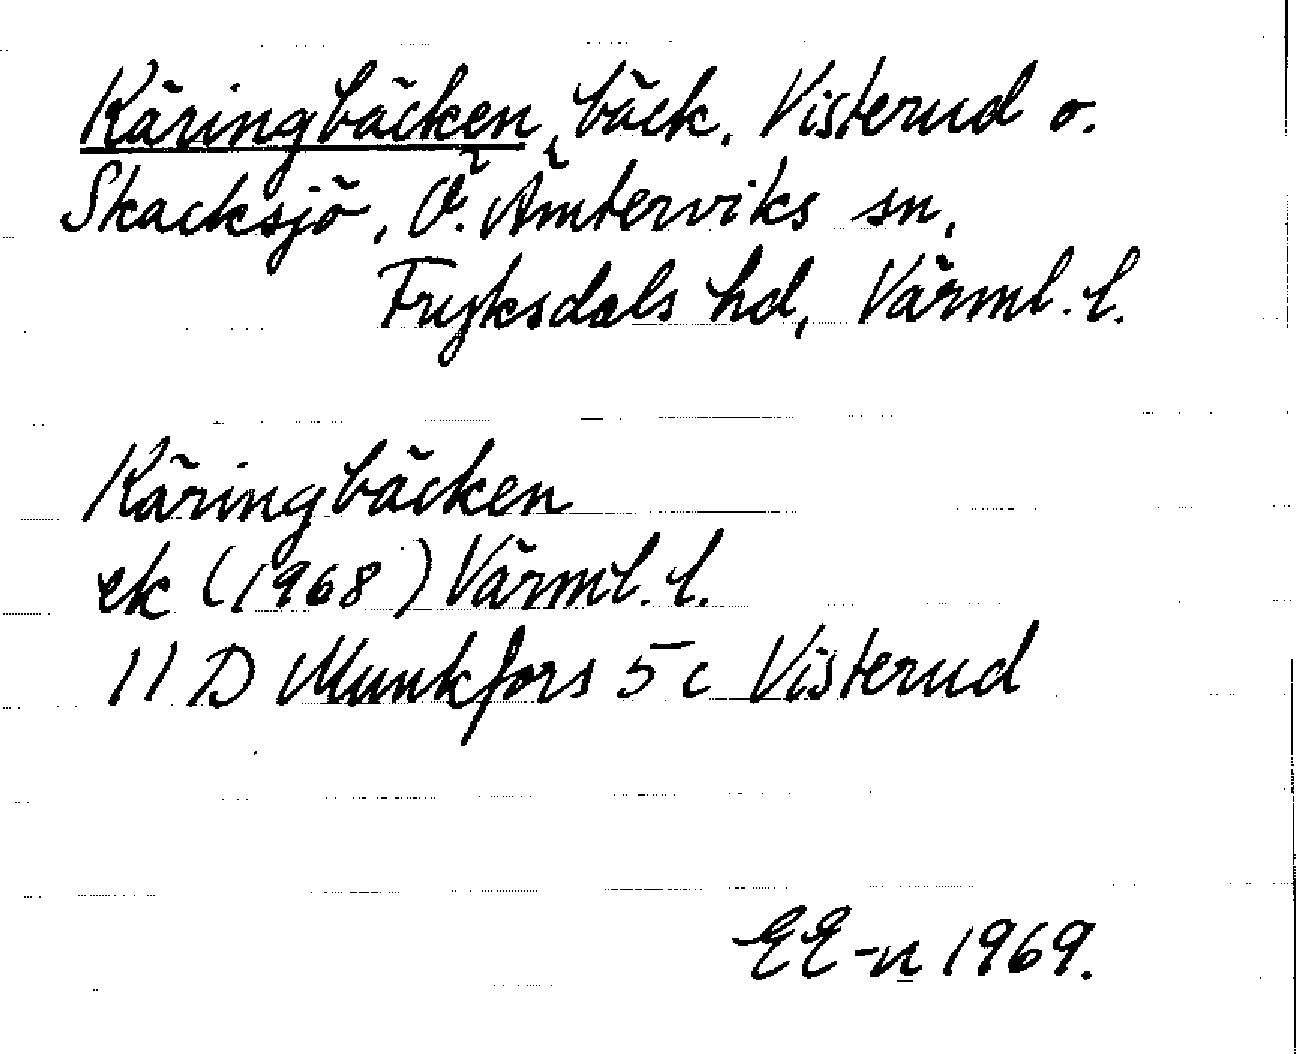 Käringbäcken, bäck. Visterud o.
Skacksjö, Ö. Ämterviks sn,
Fryksdals hd, Värml. l.
Käringbäcken
ek (1968) Värml. l.
11 D Munkfors 5 c Visterud
EE-n 1969.